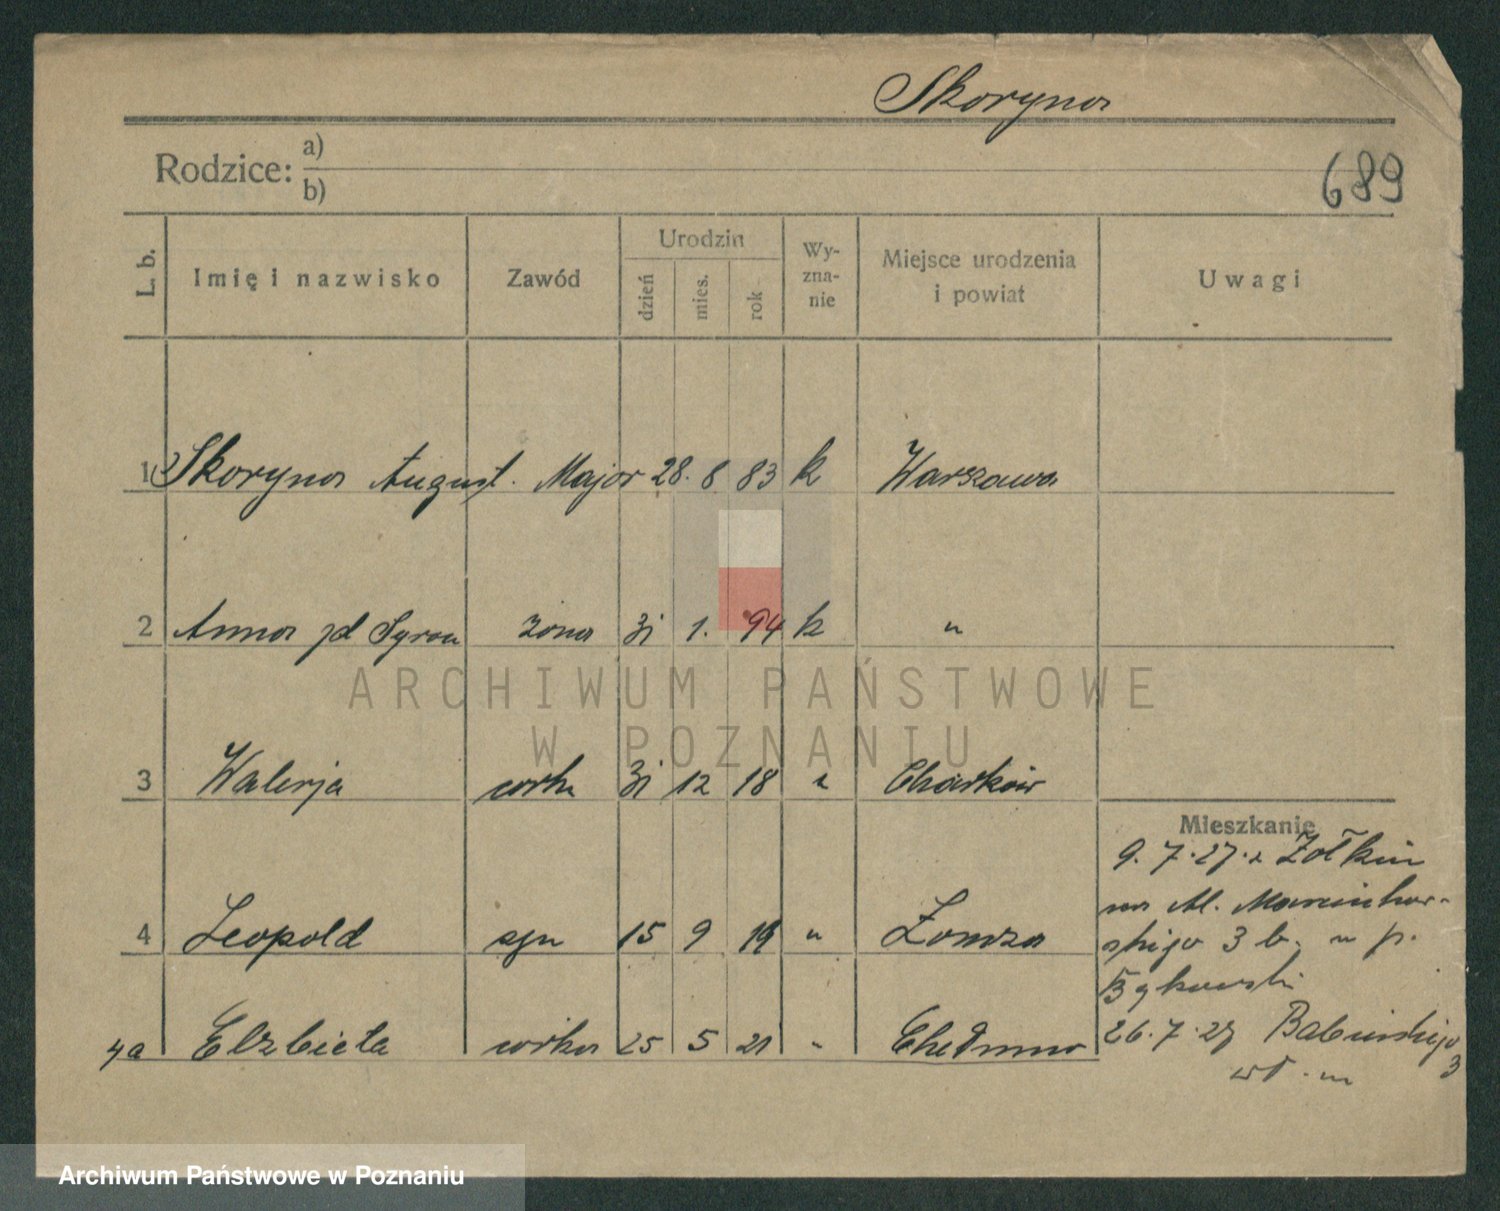 Skoryna
Rodzice: a)
b)
689
L. b. Imię i nazwisko Zawód Urodzin dzień mies. rok Wy-zna-nie Miejsce urodzenia i powiat Uwagi
1 Skoryna August. Major 28. 8 83 k Warszawa
2 Anna zd Syrou żona 31 1. 94 k "
ARCHIWUM PAŃSTWOWE
W POZNANIU
3 Walerja córka 31 12 18 " Charków
4 Leopold syn 15 9 19 " Łomza
4a Elzbieta córka 25 5 21 " Chełmno
Mieszkanie
9. 7. 27. z Żółkiu
na Al. Marcinkow-
skiego 3 b. u p.
Bykowski
26. 7. 27 Babinskiego 3
wł. m
Archiwum Państwowe w Poznaniu